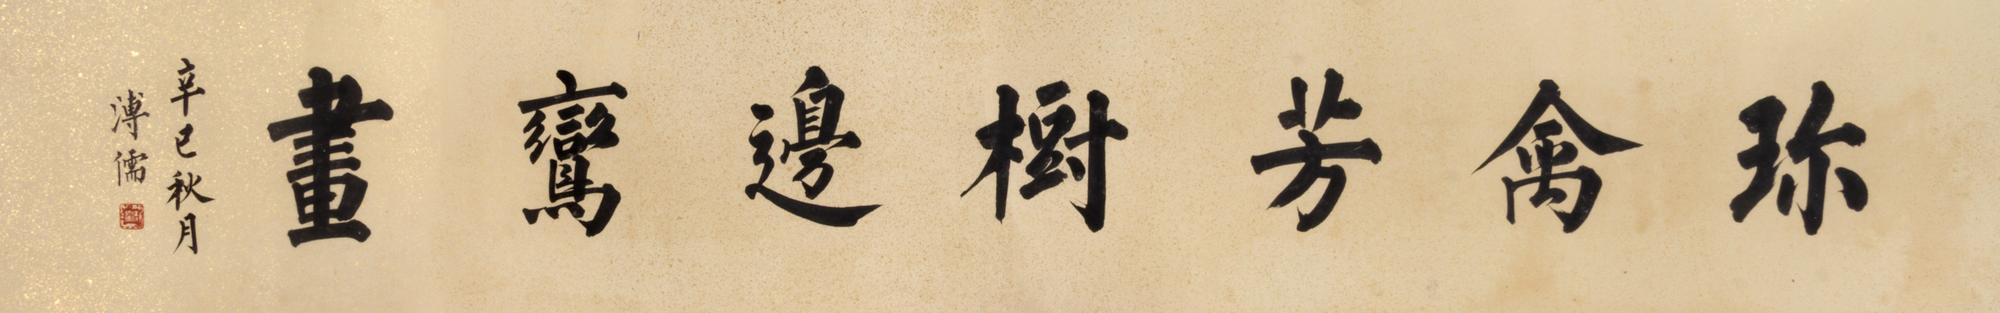 珎禽芳樹邊鸞畫
辛巳秋月
溥儒